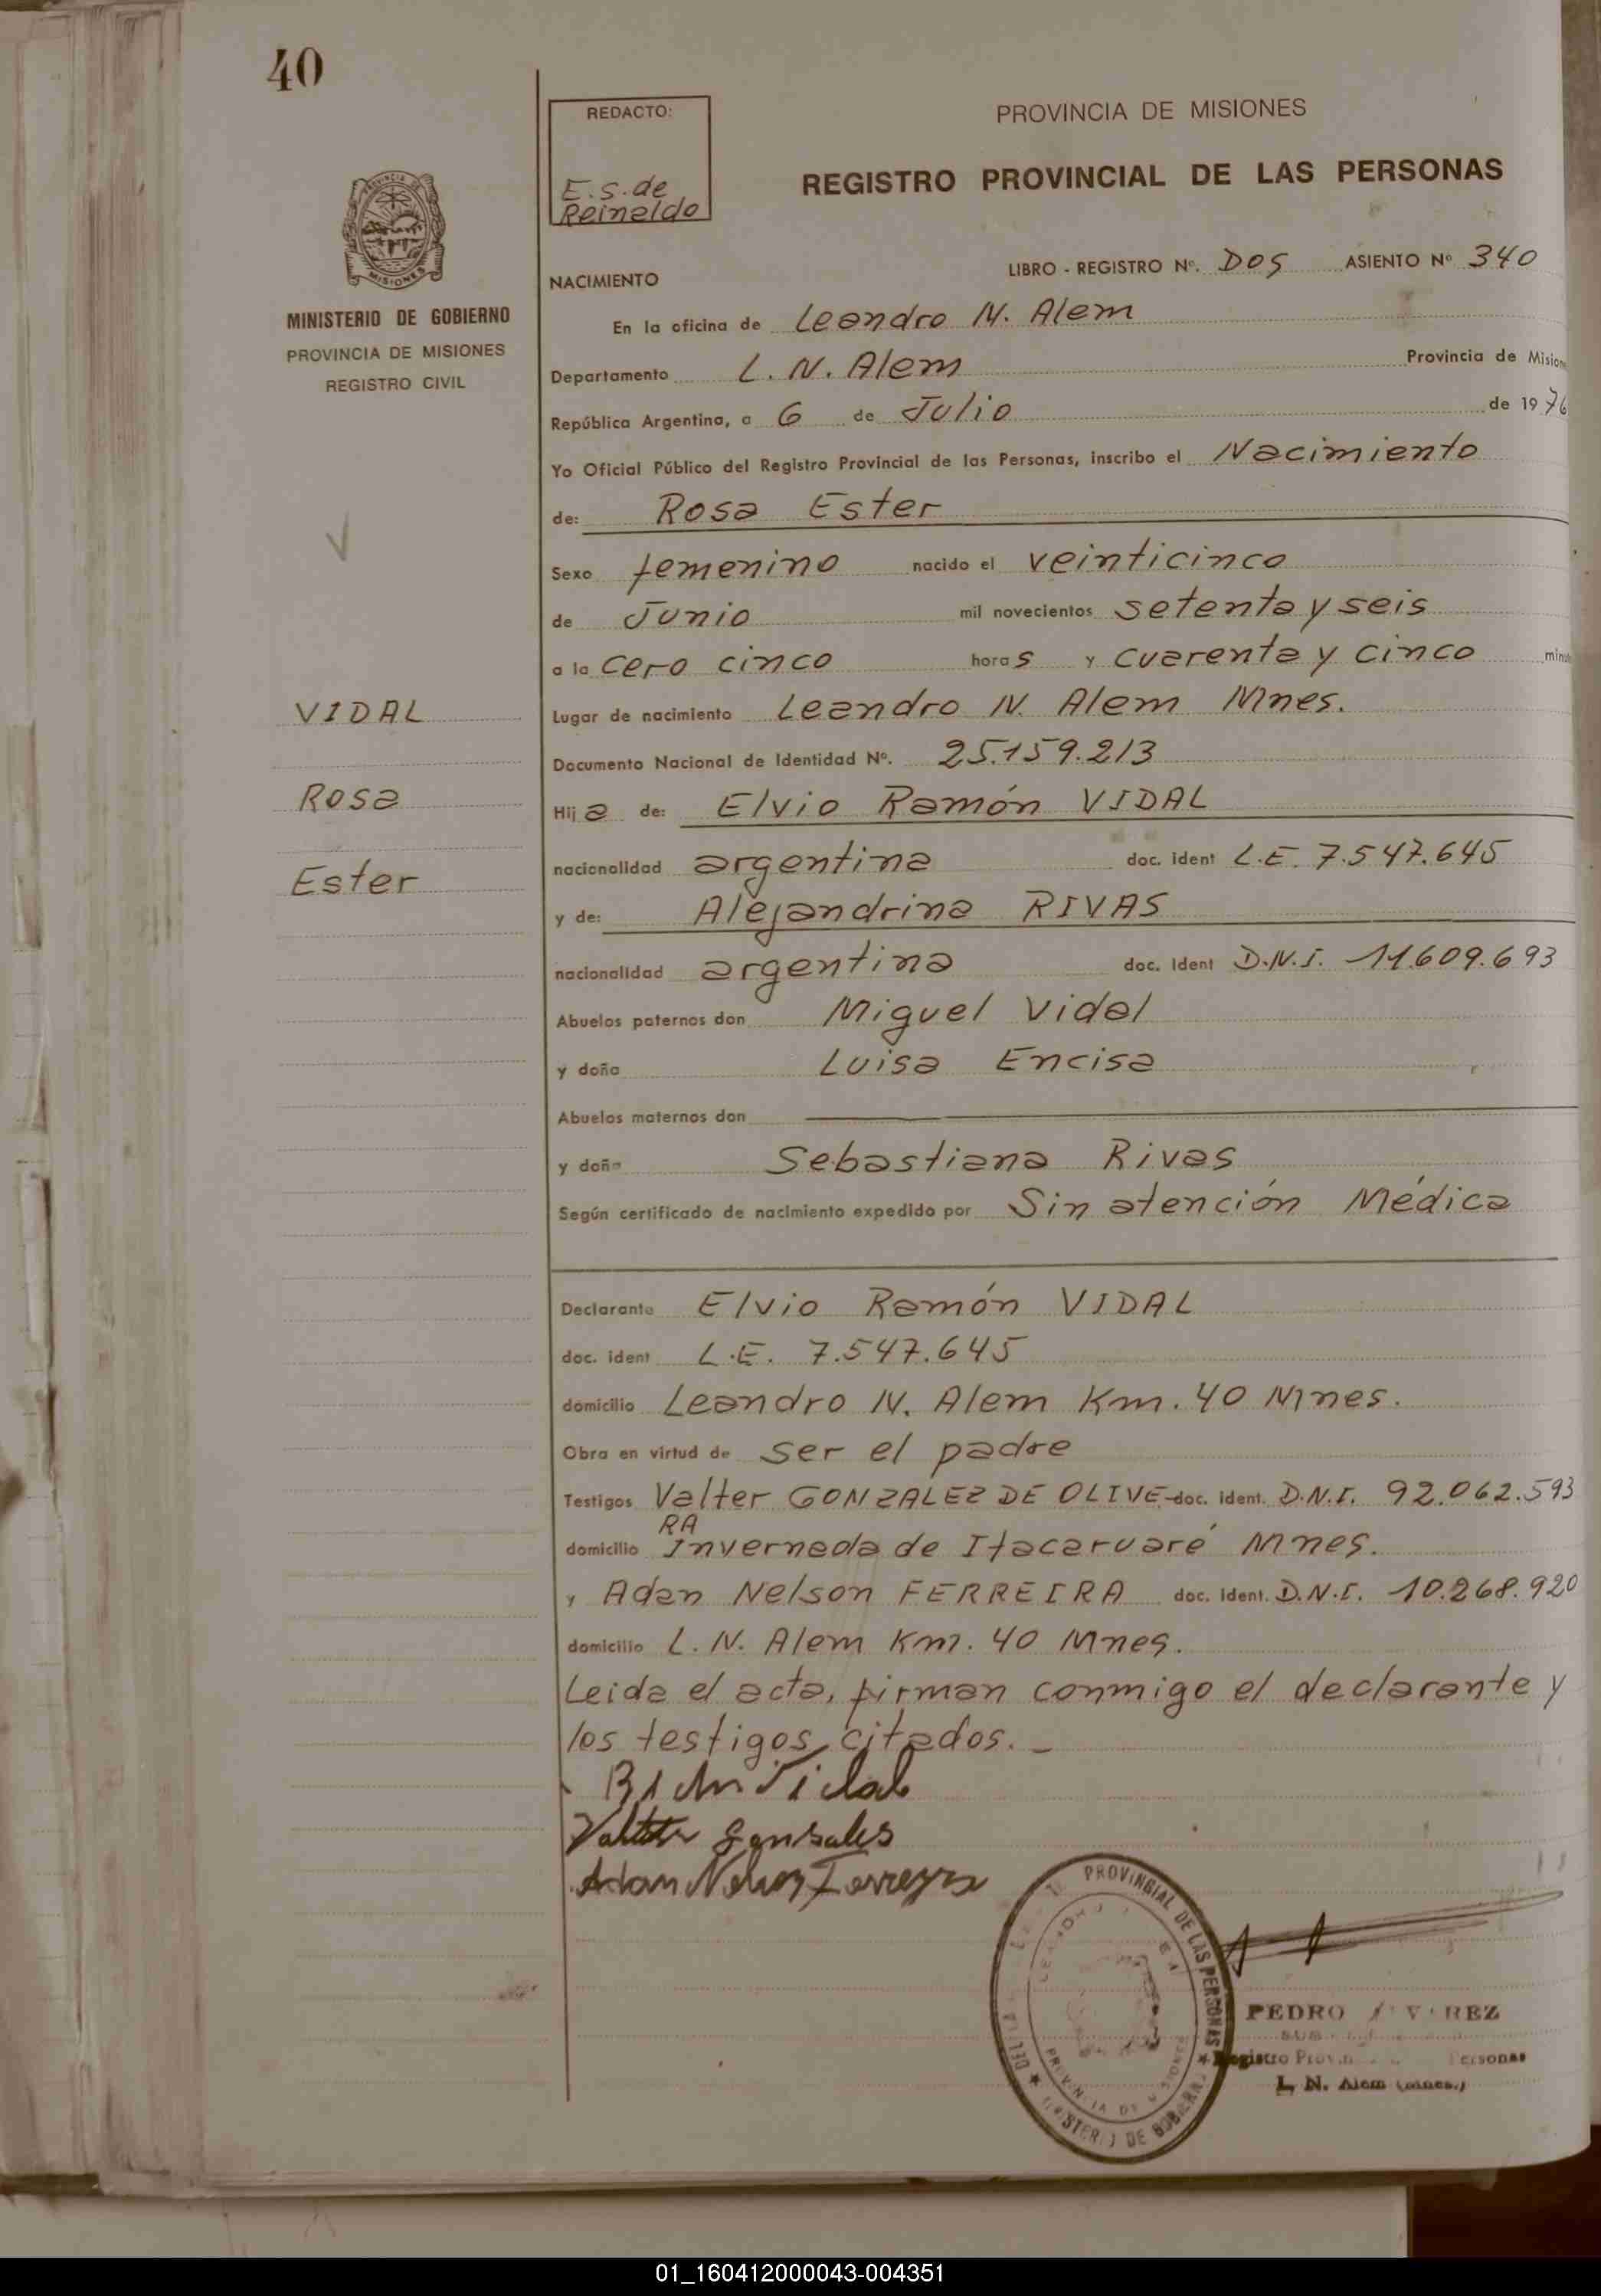 40
REDACTO:
E.S. de
Reinaldo
PROVINCIA DE MISIONES
REGISTRO PROVINCIAL DE LAS PERSONAS
PROVINCIA DE
MISIONES
MINISTERIO DE GOBIERNO
PROVINCIA DE MISIONES
REGISTRO CIVIL
NACIMIENTO
LIBRO - REGISTRO Nº. DOS ASIENTO Nº 340
En la oficina de Leandro N. Alem
Departamento L. N. Alem Provincia de Mision
República Argentina, a 6 de Julio de 1976
Yo Oficial Público del Registro Provincial de las Personas, inscribo el Nacimiento
de: Rosa Ester
Sexo femenino nacido el veinticinco
de Junio mil novecientos setenta y seis
a la cero cinco horas y cuarenta y cinco minu
VIDAL
Lugar de nacimiento Leandro N. Alem Mnes.
Documento Nacional de Identidad Nº. 25.159.213
Rosa
Hija de: Elvio Ramón VIDAL
nacionalidad argentina doc. ident L.E. 7.547.645
Ester
y de: Alejandrina RIVAS
nacionalidad argentina doc. ident D.N.I. 11.609.693
Abuelos paternos don Miguel Vidal
y doña Luisa Encisa
Abuelos maternos don
y doña Sebastiana Rivas
Según certificado de nacimiento expedido por Sin atención Médica
Declarante Elvio Ramón VIDAL
doc. ident L.E. 7.547.645
domicilio Leandro N. Alem Km. 40 Mnes.
Obra en virtud de ser el padre
Testigos Valter GONZALEZ DE OLIVE- doc. ident. D.N.I. 92.062.593
RA
domicilio Invernada de Itacaruaré Mnes.
y Adan Nelson FERREIRA doc. ident. D.N.I. 10.268.920
domicilio L. N. Alem Km. 40 Mnes.
Leida el acta, firman conmigo el declarante y
los testigos citados. _
Vidal
Valter Gonsales
Adan Nelson Ferreyra
PROVINCIAL DE LAS PERSONAS
DE GOBIERNO
PEDRO
Registro Personas
L. N. Alem (Mnes.)
01_160412000043-004351